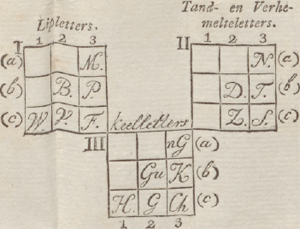 Lipletters.
Tand- en Verhe-
melteletters.
I 1 2 3
II 1 2 3
(a) M. N. (a)
(b) B. P D. T. (b)
(c) W. V. F. Z. S. (c)
keelletters
III nG (a)
Gu K (b)
H. G Ch (c)
1 2 3